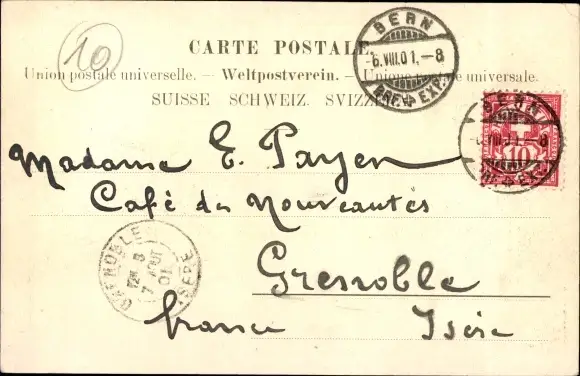 10
BERN
CARTE POSTALE
-6.VIII.01.-8
Union postale universelle. — Weltpostverein. — Unione postale universale.
BRF. EXP.
SUISSE SCHWEIZ. SVIZZERA
BERN
10
Madame E. Payen
Café des Nouveautés
GRENOBLE
7 AOUT 01
ISERE
Grenoble
france Isère